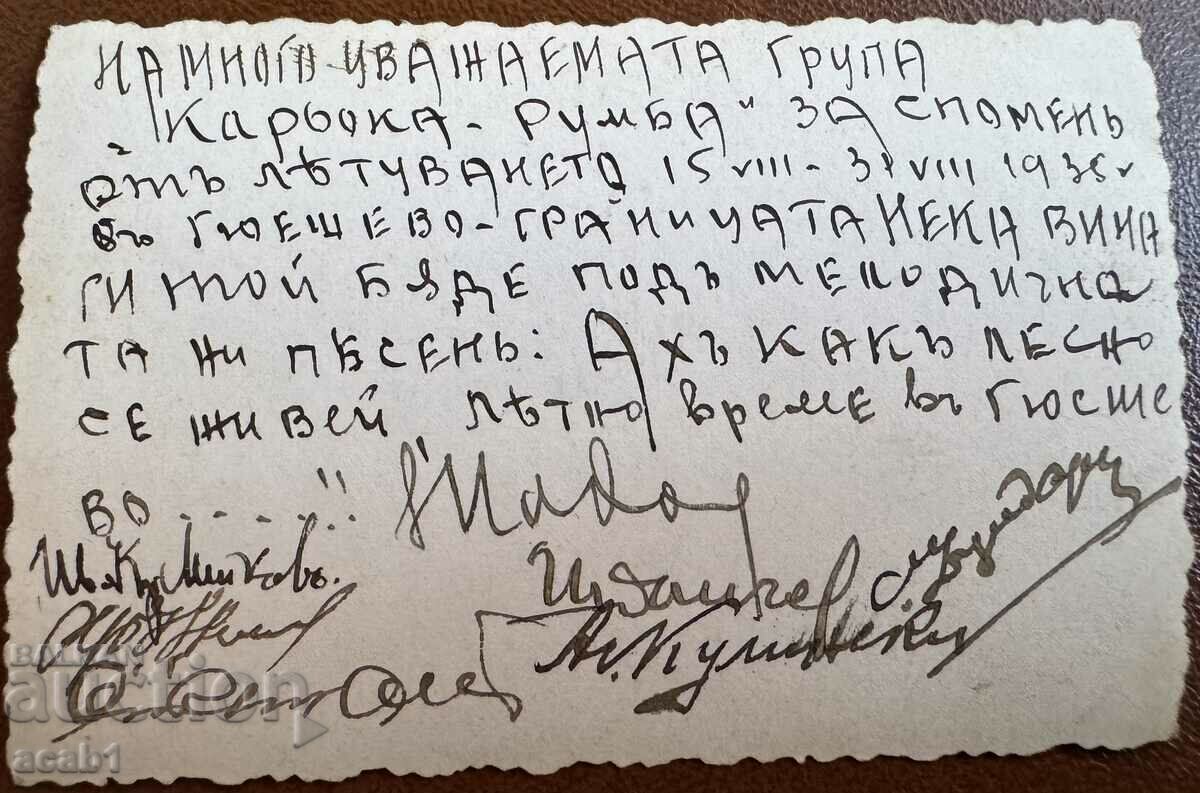 НА МНОГО УВАЖАЕМАТА ГРУПА
"Кариока - РУМБА" ЗА СПОМЕНЬ
отъ лѣтуването 15 VIII - 31 VIII 1936 г
въ ГЮЕШЕВО - ГРАНИЦАТА НЕКА ВИНА
ГИ ТОЙ БѪДЕ ПОДЪ МЕЛОДИЧНА
ТА НИ ПѢСЕНЬ: АХЪ КАКЪ ЛЕСНО
СЕ ЖИВЕЙ лѣтно време въ Гюеше
ВО .....!!
Кулински
BALKAN
auction
acab1